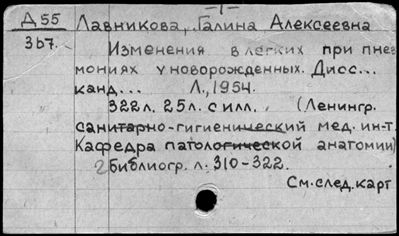 -1-
Д 55 Лавникова, Галина Алексеевна
3б7. Изменения в легких при пнев
мониях у новорожденных. Дисс...
канд... Л., 1954.
322л. 25л. с илл. (Ленингр.
санитарно-гигиенический мед. ин-т.
Кафедра патологической анатомии)
Библиогр. л. 310-322.
См. след. карт